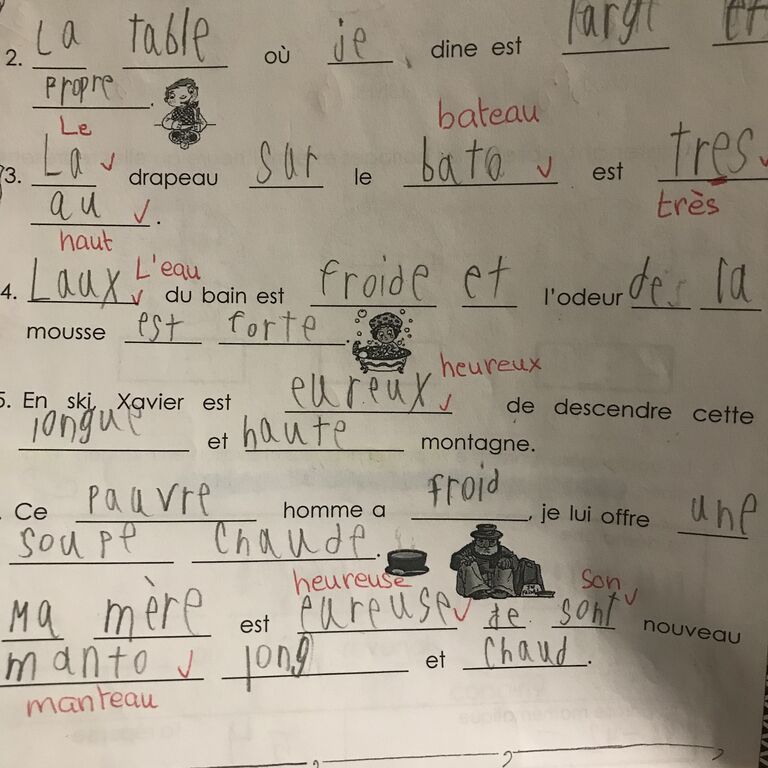 2. La table où je dine est large et
propre.
Le bateau
3. La drapeau sur le bato est tres
au. très
haut
L'eau
4. Laux du bain est froide et l'odeur des la
mousse est forte.
heureux
5. En ski, Xavier est eureux de descendre cette
longue et haute montagne.
Ce pauvre homme a froid, je lui offre une
soupe chaude.
heureuse son
Ma mère est eureuse de sont nouveau
manto long et chaud.
manteau